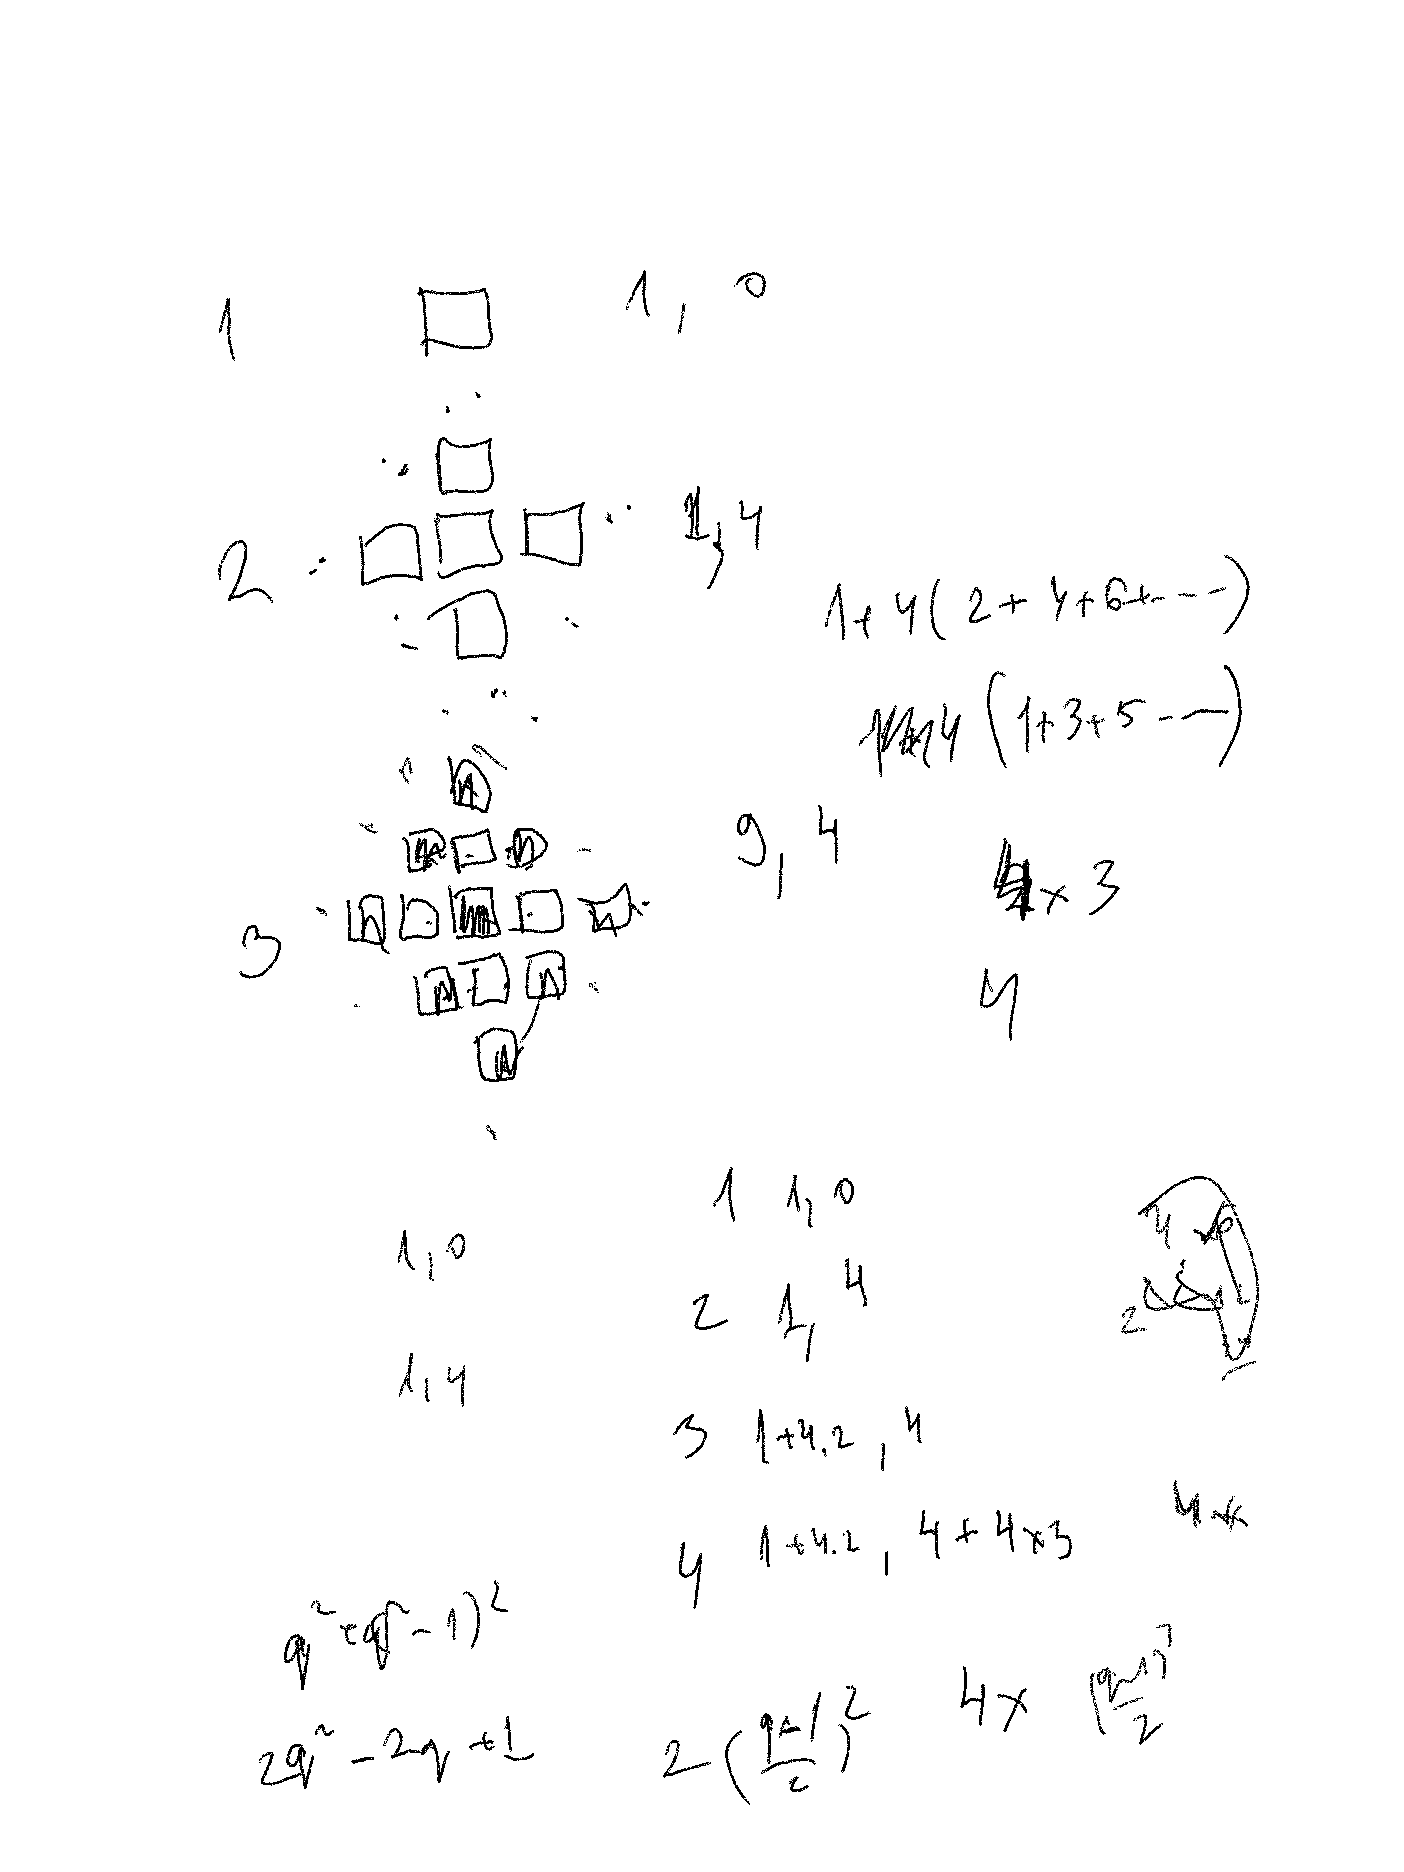 1 1, 0
2 1, 4
1+4(2+4+6+---)
4(1+3+5---)
3 9, 4
x 3
4
1 1, 0
1, 0
2 1, 4
1, 4
3 1+4.2, 4
4 1+4.2, 4+4x3 4x
q²+(q-1)²
2q²-2q+1
2(q-1/2)² 4x